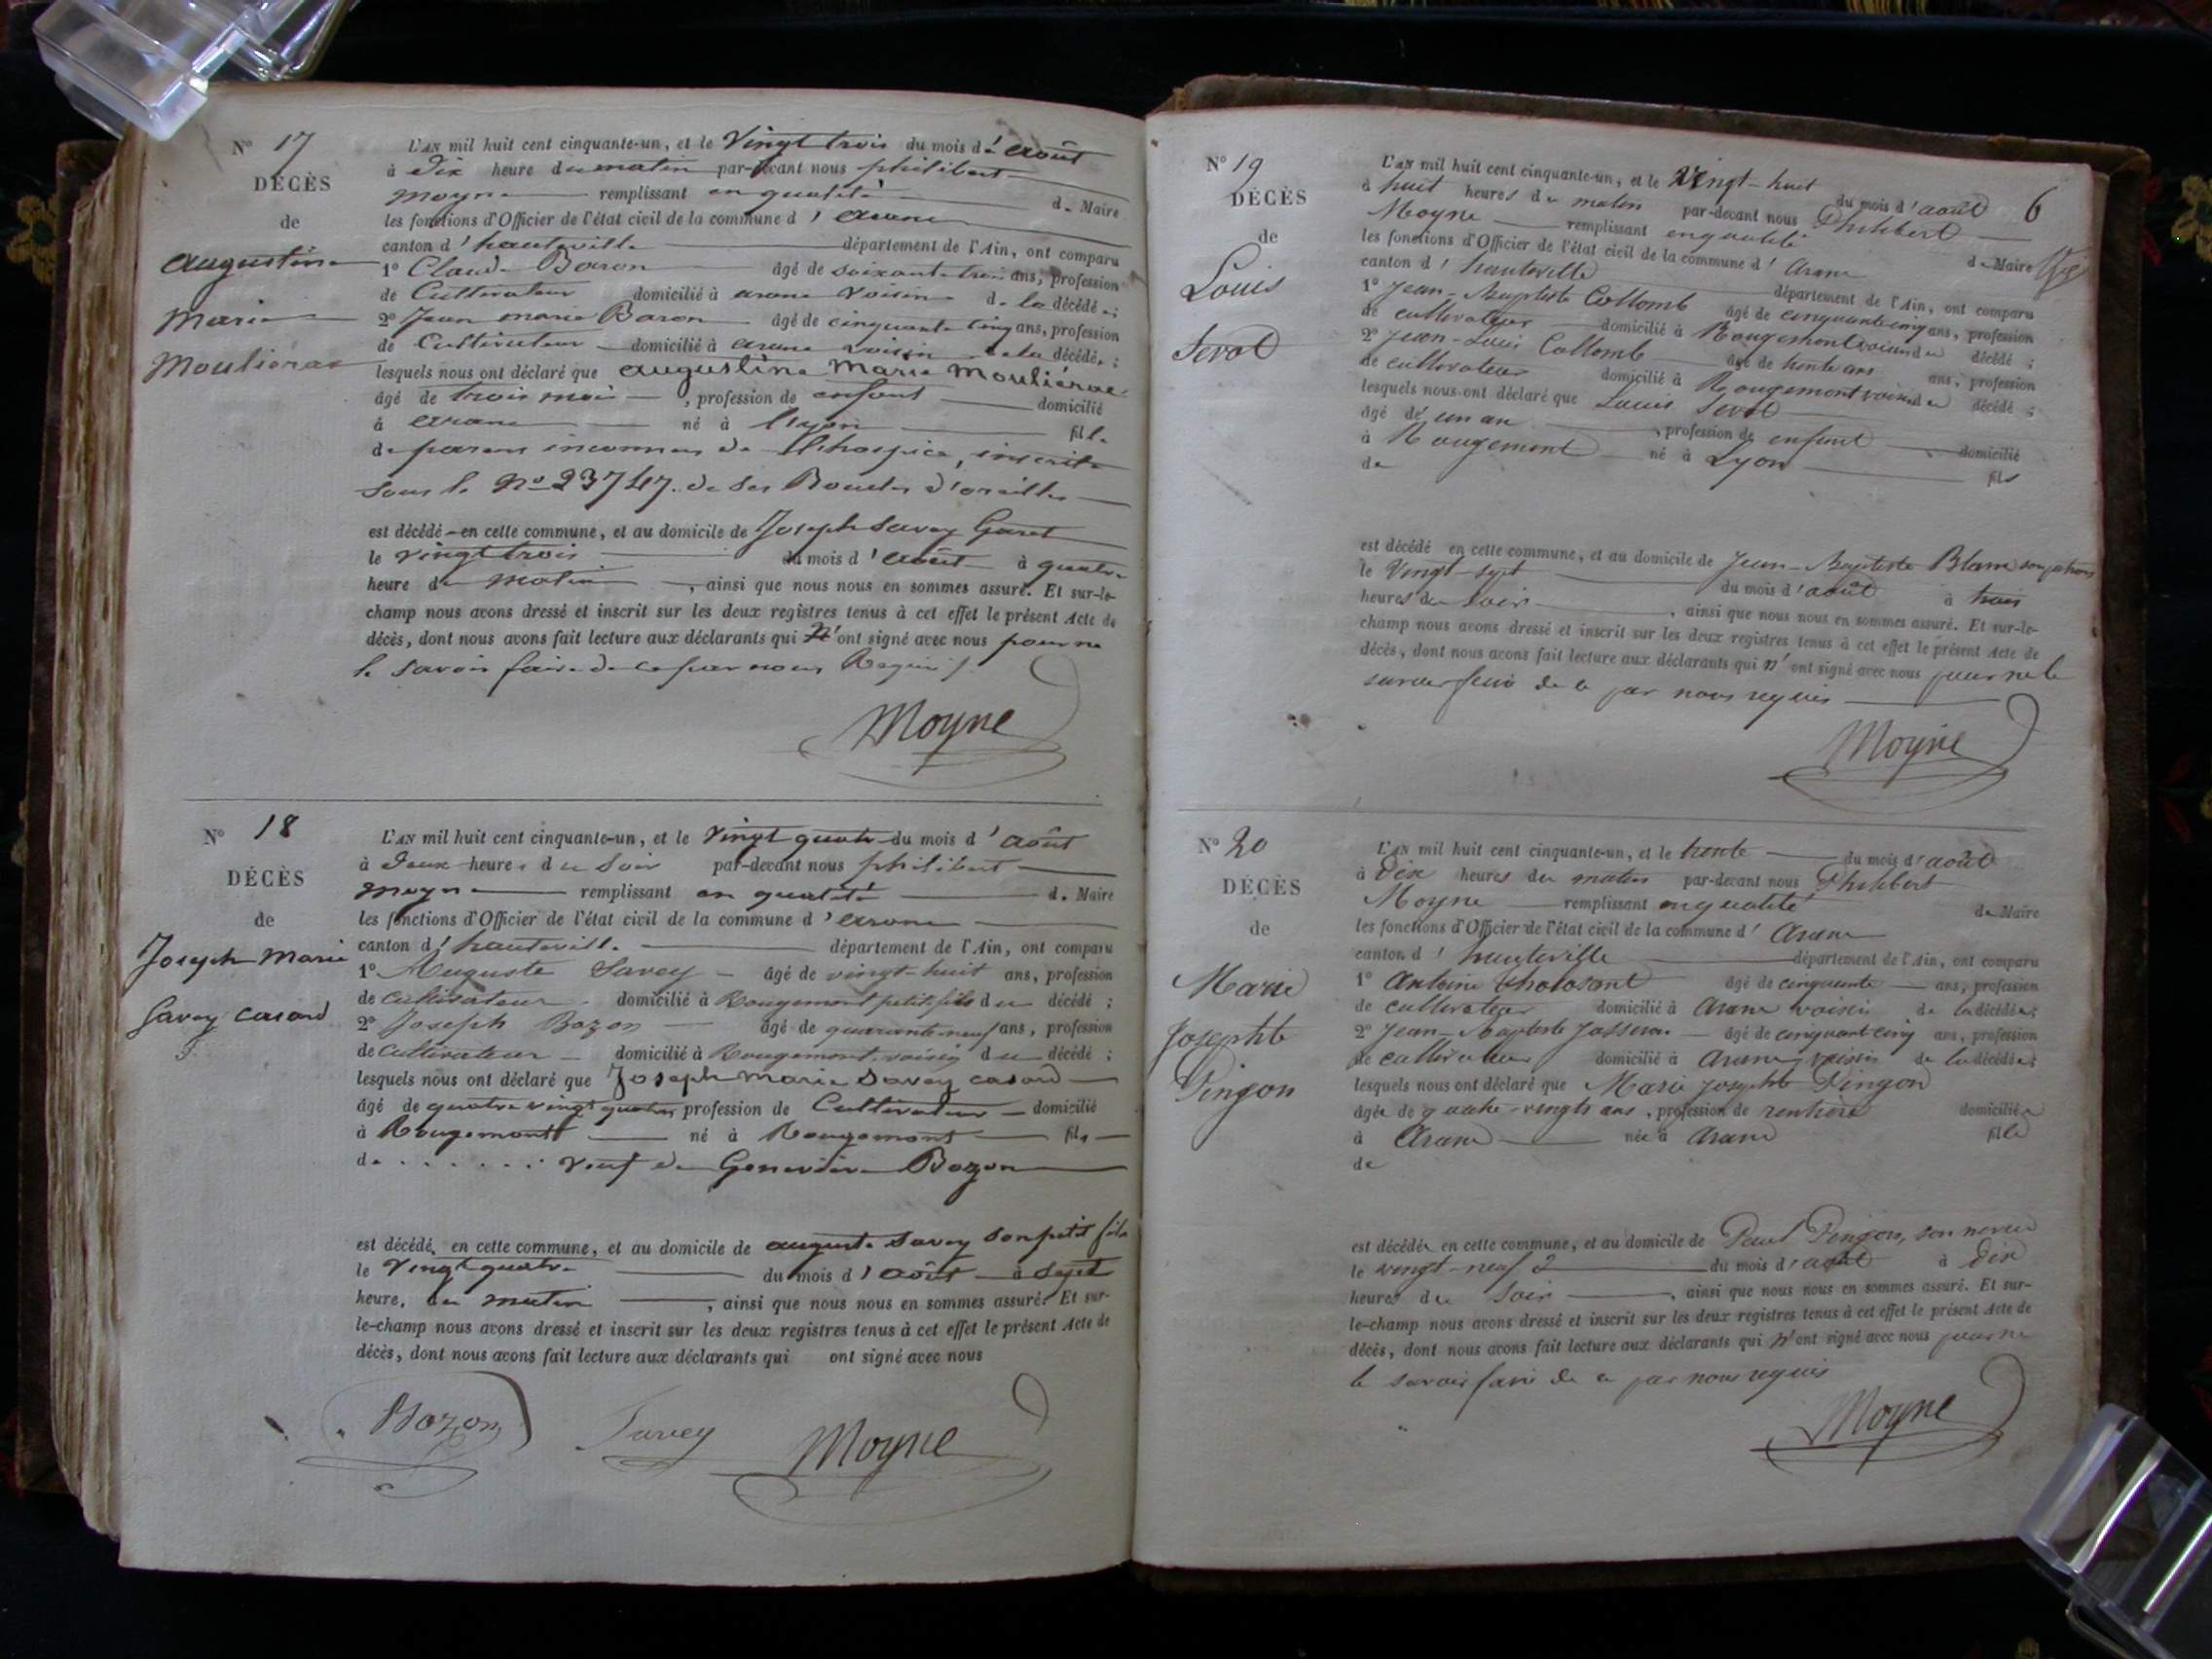 N° 17
DÉCÈS
de
Augustine
Marie
Moulieras
L'AN mil huit cent cinquante-un, et le Vingt trois du mois d'août
à Dix heure du matin par-devant nous philibert
Moyne remplissant en qualité de Maire
les fonctions d'Officier de l'état civil de la commune d'arane
canton d'hauteville département de l'Ain, ont comparu
1° Claude Baron âgé de soixante trois ans, profession
de Cultivateur domicilié à arane voisin de la décédée;
2° Jean marie Baron âgé de cinquante cinq ans, profession
de Cultivateur domicilié à arane voisin de la décédée;
lesquels nous ont déclaré que augustine Marie Moulièras
âgé de trois mois, profession de enfant domicilié
à arane né à Lyon fille
de parens inconnus de l'hospice, inscrite
sous le N° 23747. de ses Boucles d'oreilles
est décédé en cette commune, et au domicile de Joseph Savey Garet
le vingt trois du mois d'août à quatre
heure du matin, ainsi que nous nous en sommes assuré. Et sur-le-
champ nous avons dressé et inscrit sur les deux registres tenus à cet effet le présent Acte de
décès, dont nous avons fait lecture aux déclarants qui N'ont signé avec nous pour ne
le savoir faire de ce par nous Requis
Moyne
N° 18
DÉCÈS
de
Joseph Marie
Savey casard
L'AN mil huit cent cinquante-un, et le vingt quatre du mois d'août
à Deux heures du Soir par-devant nous philibert
Moyne remplissant en qualité de Maire
les fonctions d'Officier de l'état civil de la commune d'arane
canton d'hauteville département de l'Ain, ont comparu
1° Auguste Savey âgé de vingt-huit ans, profession
de cultivateur domicilié à Rougemont petit fils du décédé;
2° Joseph Bozon âgé de quarante-neuf ans, profession
de cultivateur domicilié à Rougemont, voisin du décédé;
lesquels nous ont déclaré que Joseph marie Savey casard
âgé de quatre vingt quatre profession de Cultivateur domicilié
à Rougemont né à Rougemont fils
de . . . . . . . veuf de Geneviève Bozon
est décédé en cette commune, et au domicile de auguste Savey son petit fils
le Vingt quatre du mois d'août à Sept
heure, du matin, ainsi que nous nous en sommes assuré. Et sur-
le-champ nous avons dressé et inscrit sur les deux registres tenus à cet effet le présent Acte de
décès, dont nous avons fait lecture aux déclarants qui ont signé avec nous
Bozon Savey Moyne
6
N° 19
DÉCÈS
de
Louis
Serol
L'AN mil huit cent cinquante-un, et le Vingt-huit du mois d'août
à huit heures du matin par-devant nous Philibert
Moyne remplissant en qualité de Maire
les fonctions d'Officier de l'état civil de la commune d'Arane
canton d'hauteville département de l'Ain, ont comparu
1° Jean-Baptiste Collomb âgé de cinquante cinq ans, profession
de cultivateur domicilié à Rougemont voisin du décédé;
2° Jean-Louis Collomb âgé de trente ans ans, profession
de cultivateur domicilié à Rougemont voisin du décédé;
lesquels nous ont déclaré que Louis Serol
âgé de un an, profession de enfant domicilié
à Rougemont né à Lyon fils
de
est décédé en cette commune, et au domicile de Jean-Baptiste Blanc
le Vingt-sept du mois d'août à trois
heures du soir, ainsi que nous nous en sommes assuré. Et sur-le-
champ nous avons dressé et inscrit sur les deux registres tenus à cet effet le présent Acte de
décès, dont nous avons fait lecture aux déclarants qui n'ont signé avec nous pour ne le
savoir faire de ce par nous requis
Moyne
N° 20
DÉCÈS
de
Marie
Josephte
Pingon
L'AN mil huit cent cinquante-un, et le trente du mois d'août
à Dix heures du matin par-devant nous Philibert
Moyne remplissant en qualité de Maire
les fonctions d'Officier de l'état civil de la commune d'Arane
canton d'hauteville département de l'Ain, ont comparu
1° Antoine âgé de cinquante ans, profession
de cultivateur domicilié à Arane voisin de la décédée;
2° Jean-Baptiste Josserand âgé de cinquante cinq ans, profession
de cultivateur domicilié à Arane, voisin de la décédée;
lesquels nous ont déclaré que Marie Josephte Pingon
âgée de quatre-vingts ans, profession de rentière domiciliée
à Arane née à Arane fille
de
est décédée en cette commune, et au domicile de Paul Pingon, son neveu
le vingt-neuf du mois d'août à dix
heures du soir, ainsi que nous nous en sommes assuré. Et sur-
le-champ nous avons dressé et inscrit sur les deux registres tenus à cet effet le présent Acte de
décès, dont nous avons fait lecture aux déclarants qui n'ont signé avec nous pour ne
le savoir faire de ce par nous requis
Moyne